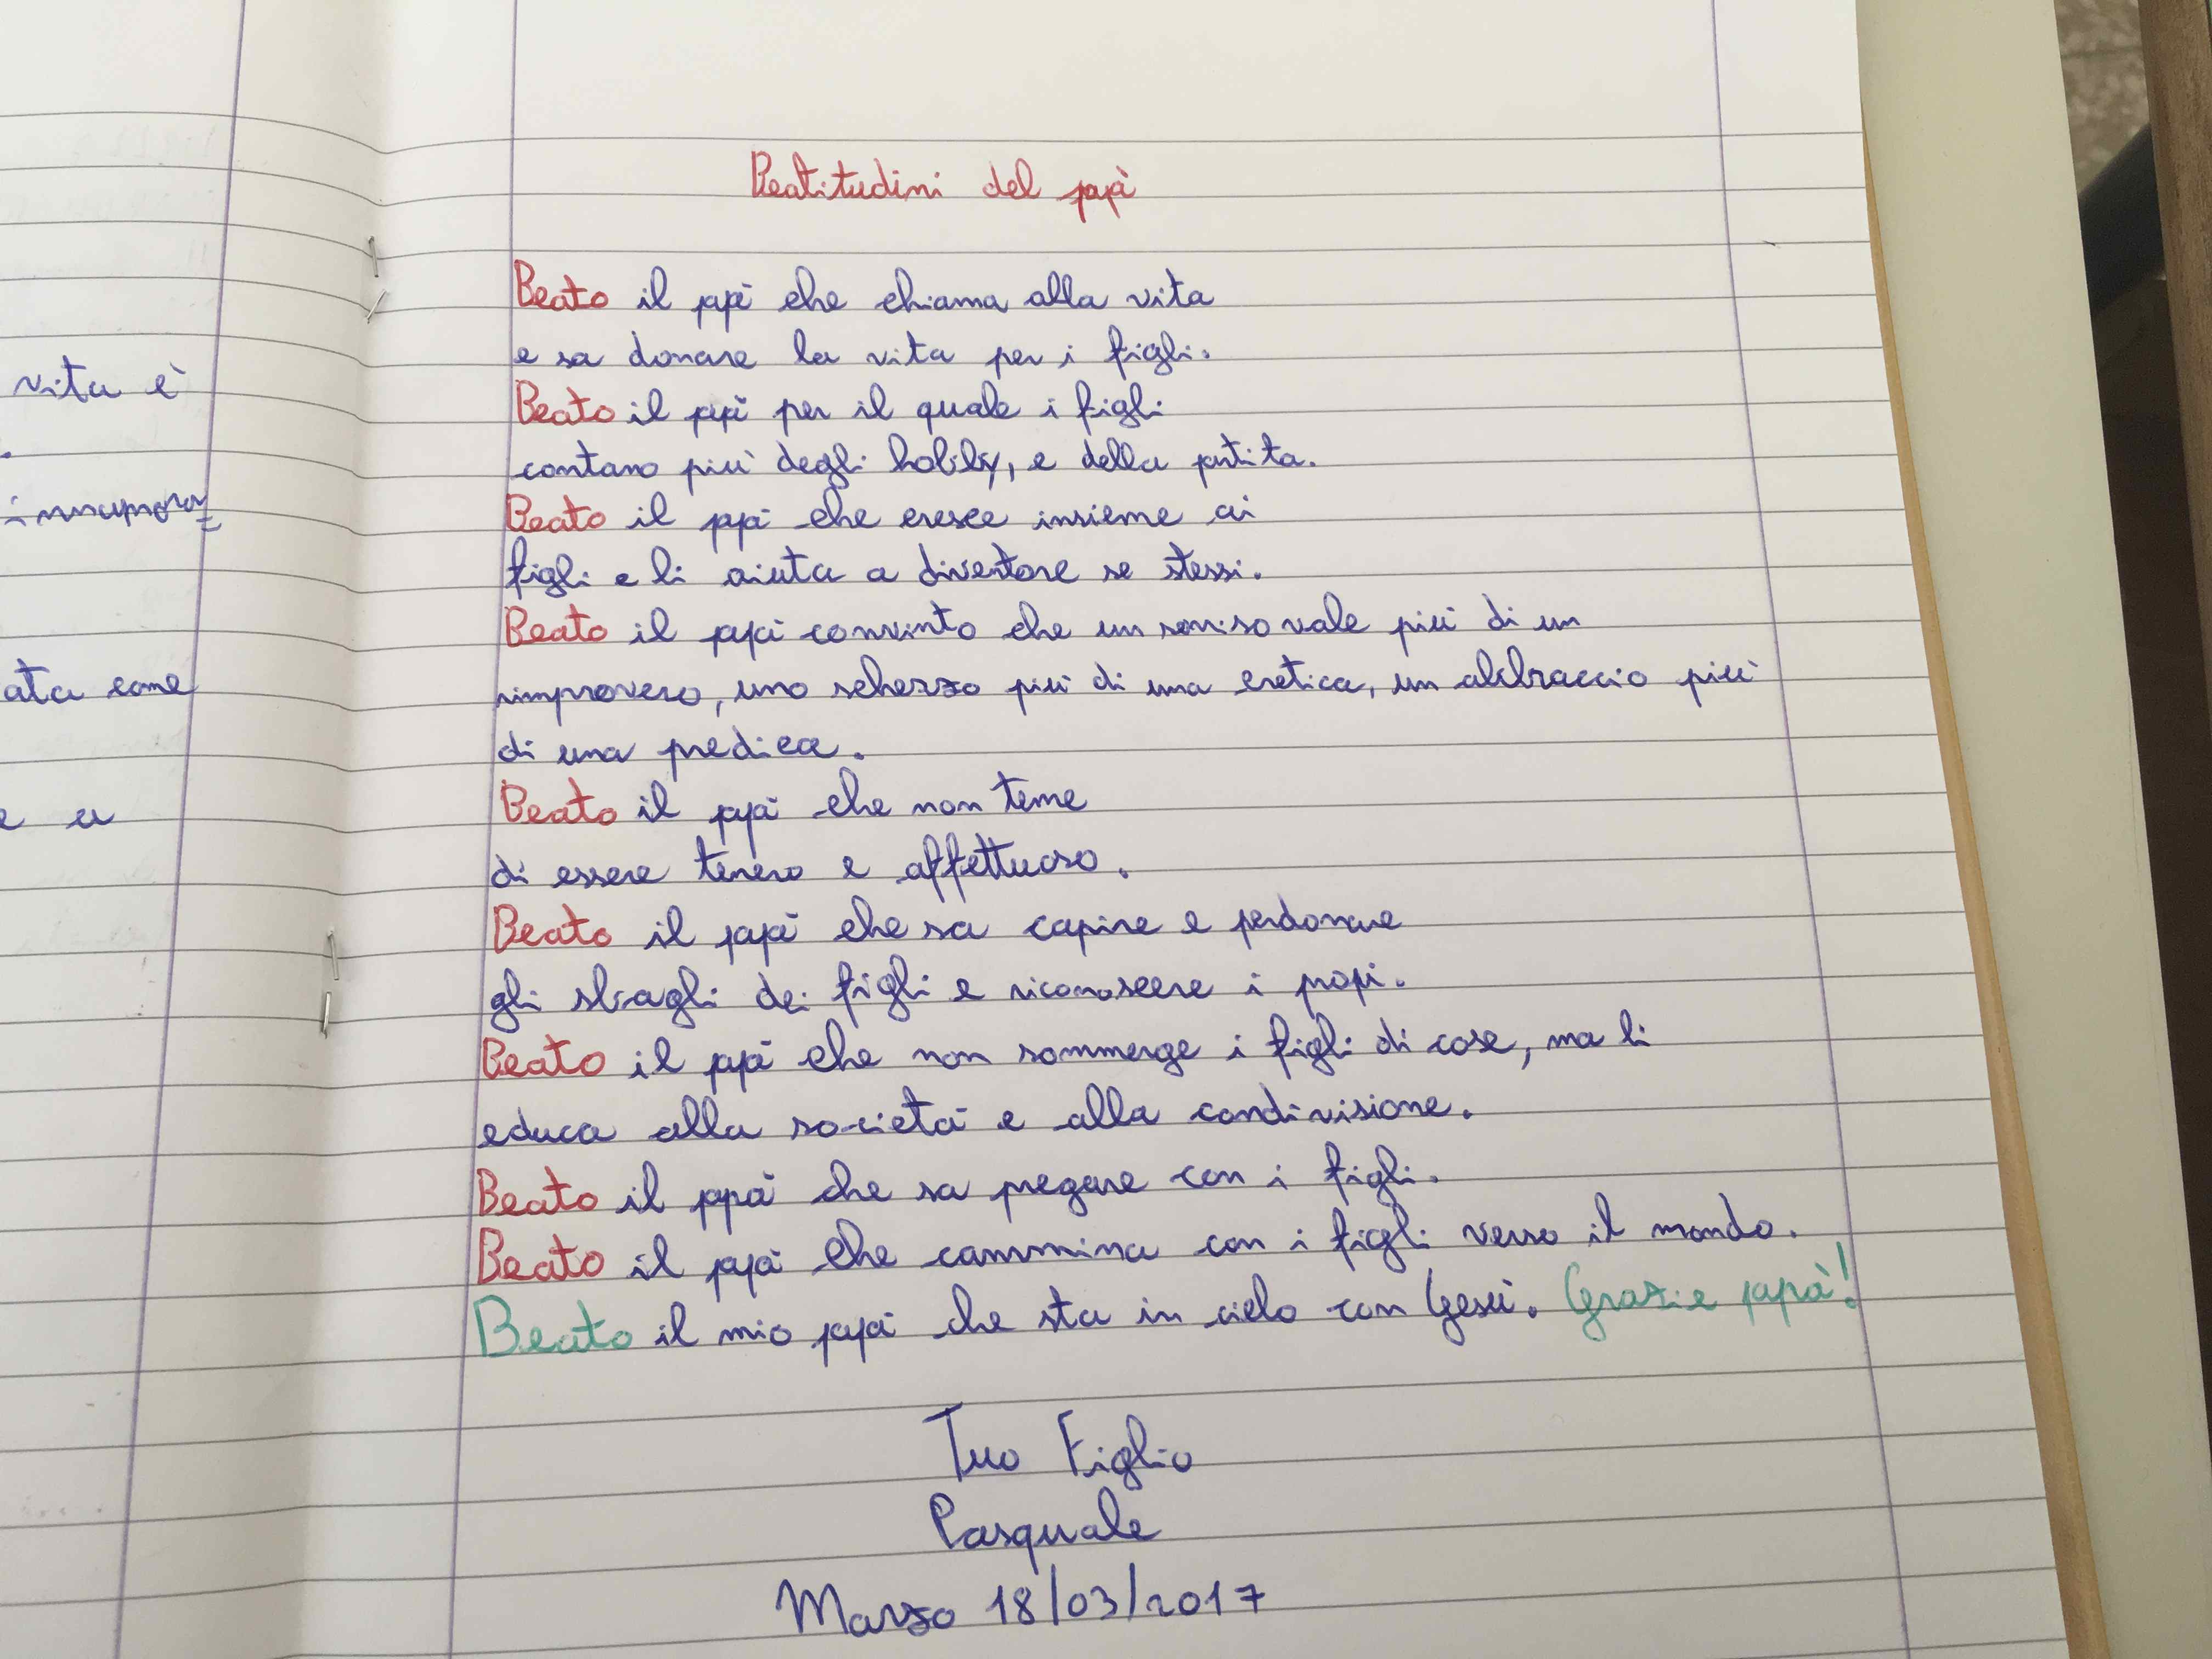 vita è
ata come
Beatitudini del papà
Beato il papà che chiama alla vita
e sa donare la vita per i figli.
Beato il papà per il quale i figli
contano più degli hobby, e della partita.
Beato il papà che cresce insieme ai
figli e li aiuta a diventare se stessi.
Beato il papà convinto che un sorriso vale più di un
rimprovero, uno scherzo più di una cretica, un abbraccio più
di una predica.
Beato il papà che non teme
di essere tenero e affettuoso.
Beato il papà che sa capire e perdonare
gli sbagli dei figli e riconoscere i propi.
Beato il papà che non sommerge i figli di cose, ma li
educa alla società e alla condivisione.
Beato il papà che sa pregare con i figli.
Beato il papà che cammina con i figli verso il mondo.
Beato il mio papà che sta in cielo con Gesù. Grazie papà!
Tuo Figlio
Pasquale
Marzo 18/03/2017